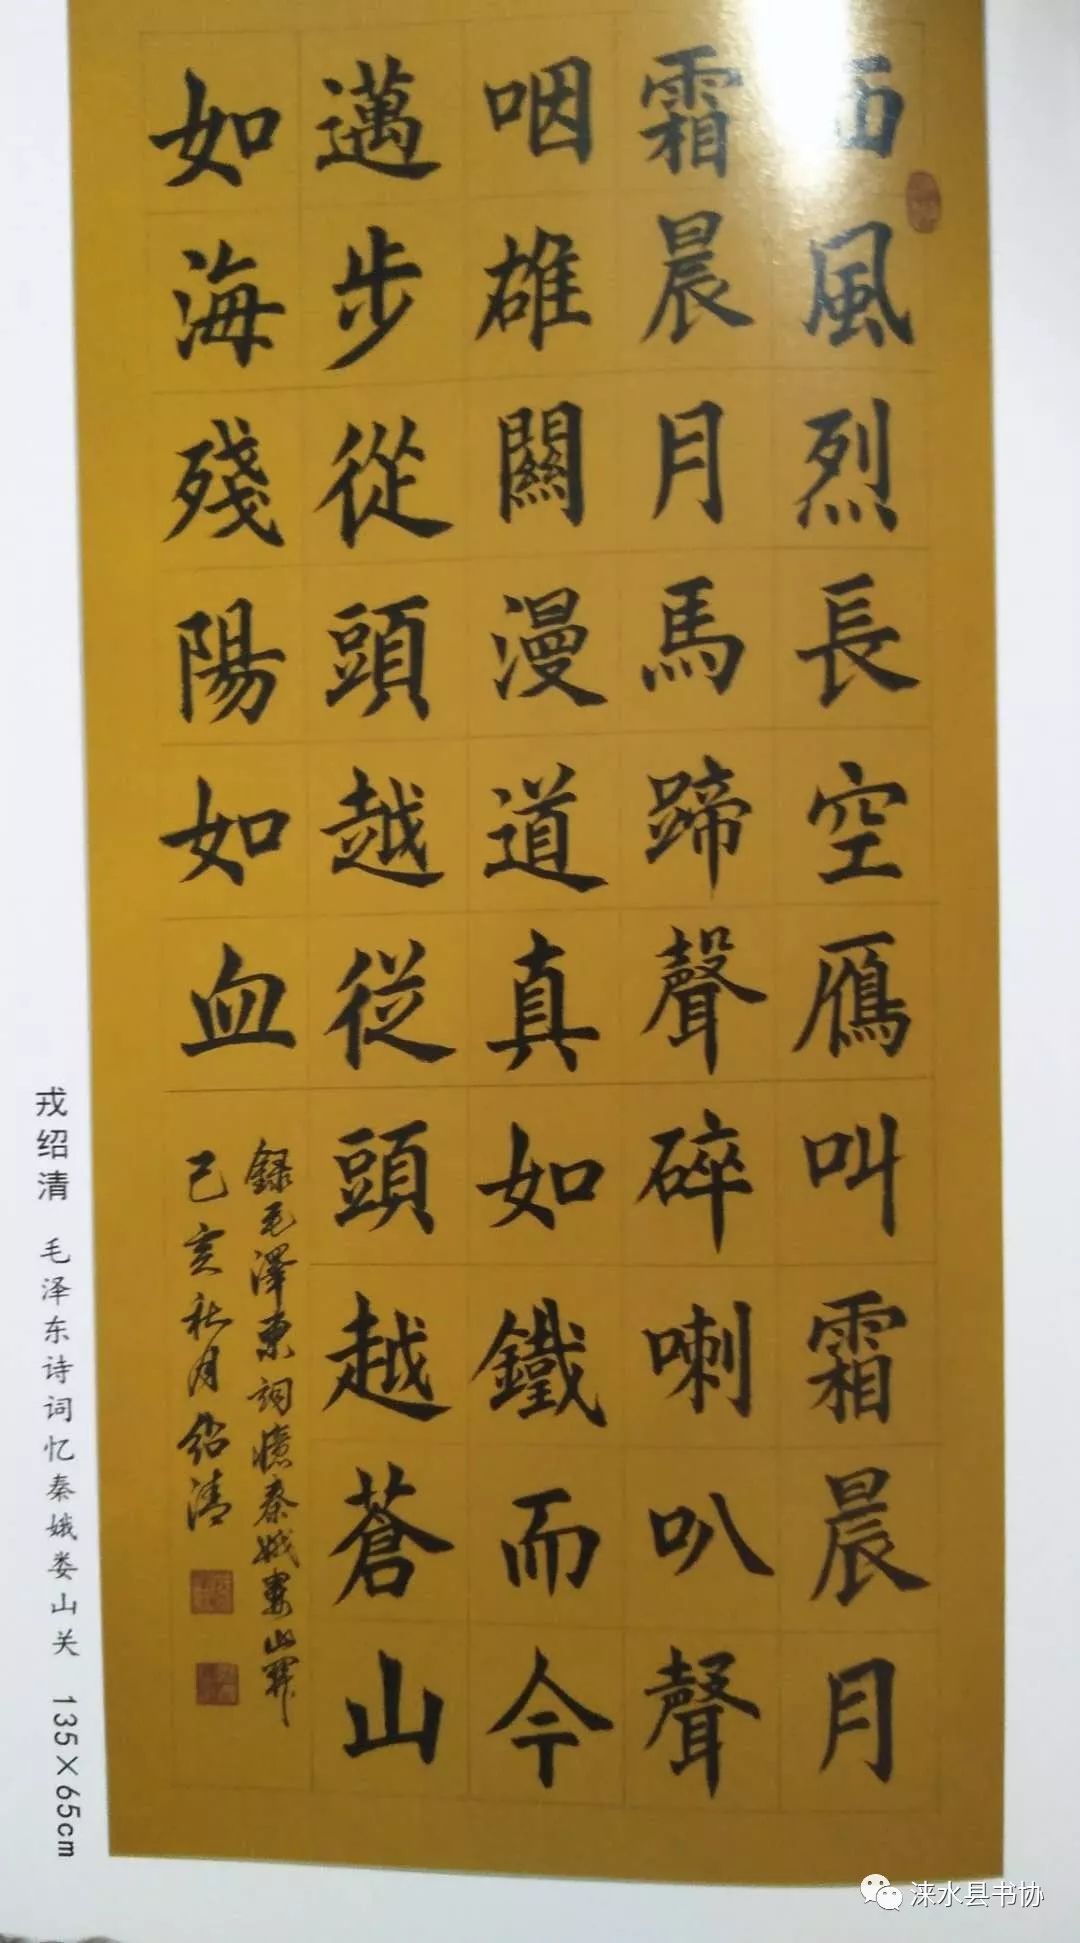 西風烈長空鴈叫霜晨月
霜晨月馬蹄聲碎喇叭聲
咽雄關漫道真如鐵而今
邁步從頭越從頭越蒼山
如海殘陽如血
録毛澤東詞憶秦娥婁山關
己亥秋月紹清
戎绍清 毛泽东诗词忆秦娥娄山关 135×65cm
涞水县书协